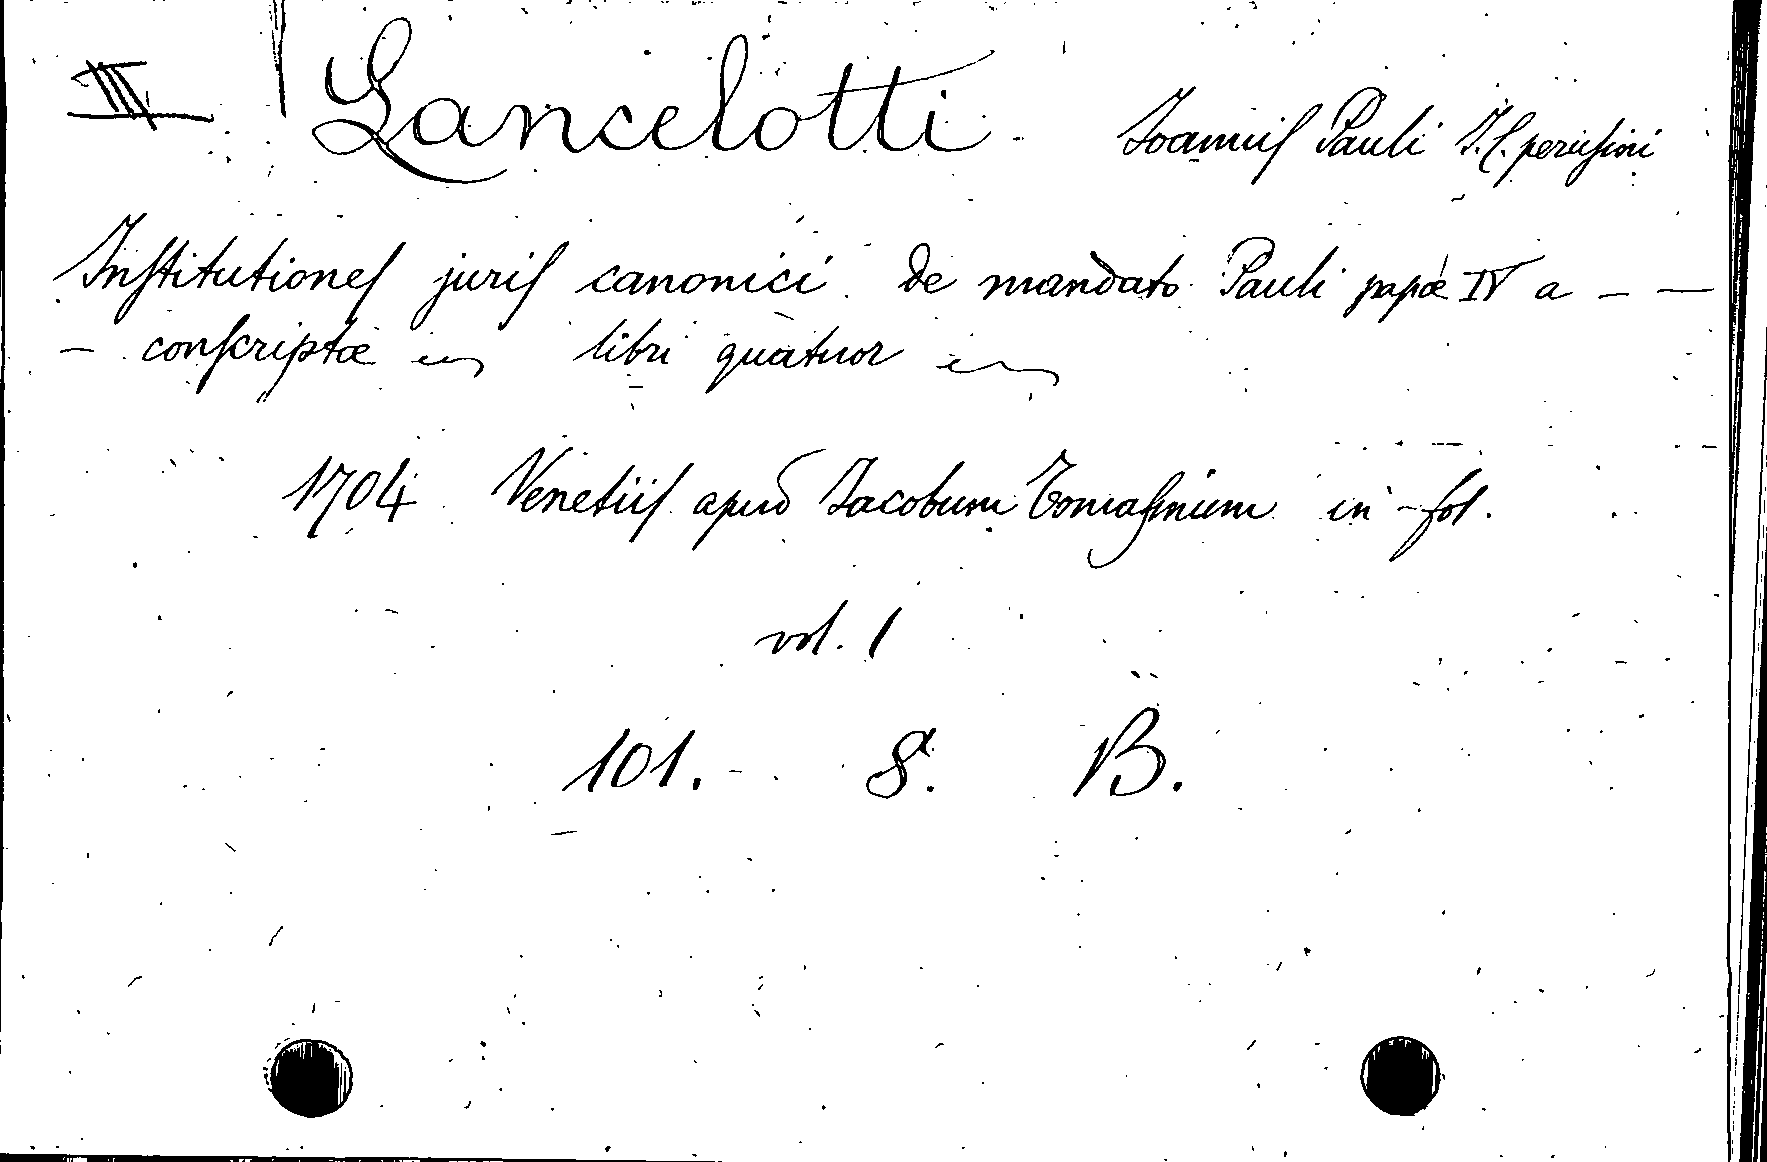 III Lancelotti Joannis Pauli J. C. perusini
Institutiones juris canonici de mandato Pauli papæ IV a - —
- conscriptæ libri quatuor
1704 Venetiis apud Jacobum Tomasinum in-fol.
vol. 1
101. 8. B.